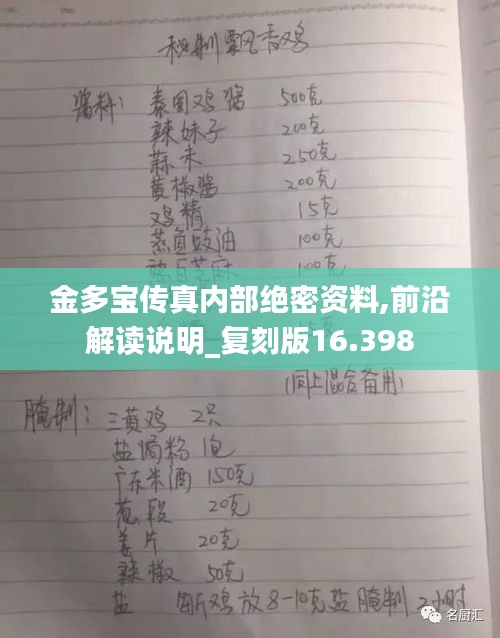 秘制飘香鸡
酱料: 泰国鸡酱 500克
辣妹子 200克
蒜末 250克
黄椒酱 200克
鸡精 15克
蒸鱼豉油 100克
熟白芝麻 100克
金多宝传真内部绝密资料,前沿
解读说明_复刻版16.398
(同上混合备用)
腌制: 三黄鸡 2只
盐焗粉 1包
广东米酒 150克
葱段 20克
姜片 20克
辣椒 50克
盐 每斤鸡放8-10克盐腌制 2小时
名厨汇